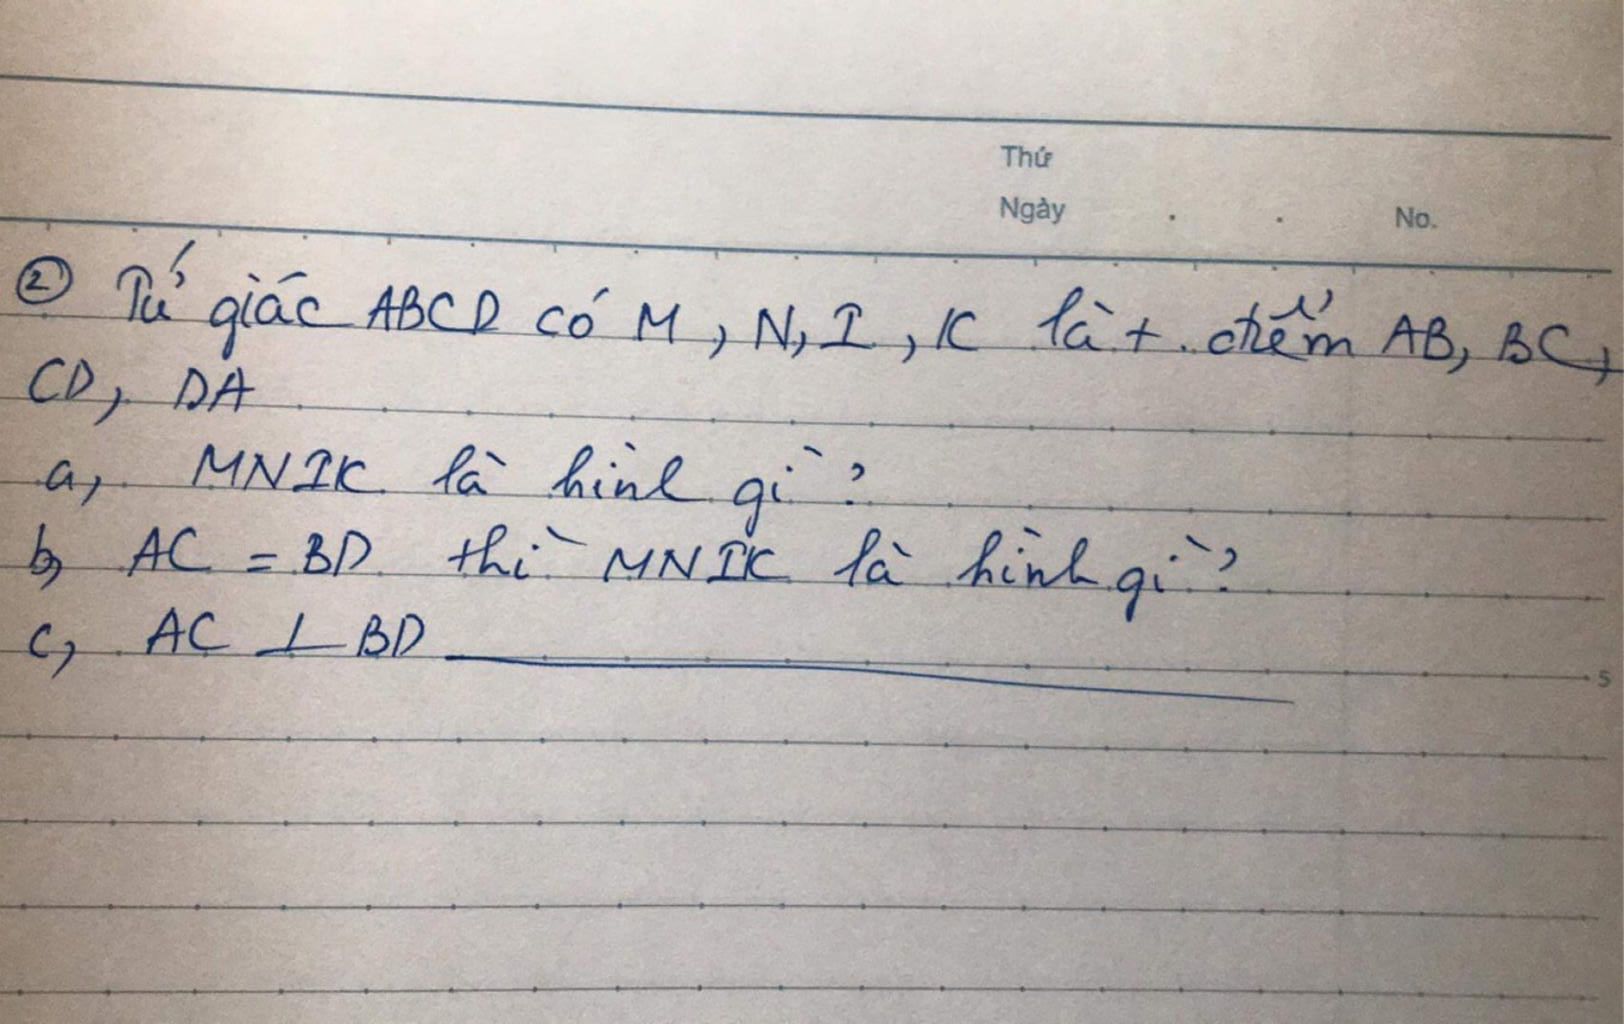 Thứ
Ngày . . No.
② Tứ giác ABCD có M, N, I, K là t. điểm AB, BC,
CD, DA
a, MNIK là hình gì?
b, AC = BD thì MNIK là hình gì?
c, AC ⊥ BD ____________
5